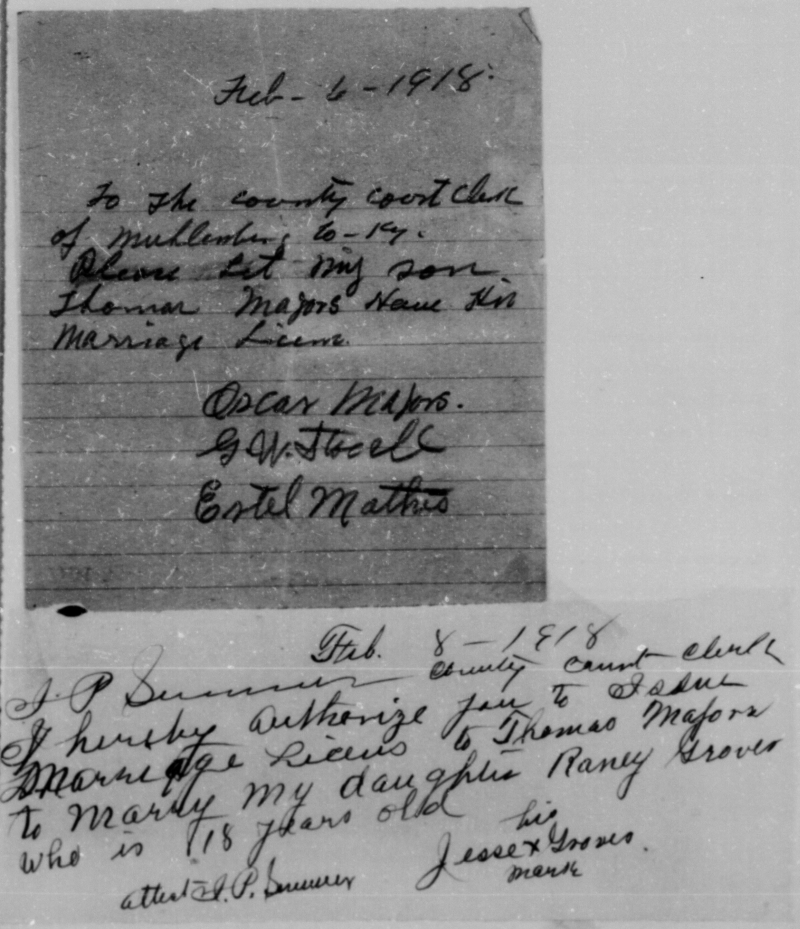 Feb - 6 - 1918.
To The county court Clerk
of Muhlenberg Co - Ky.
Please Let my son
Thomas Majors Have His
Marriage Licens.
Oscar Majors.
G.W.
Estel Mathis
Feb. 8 - 1918
County Court Clerk
I hereby authorize you to Issue
Marriage Licens to Thomas Majors
to Marry my daughter Raney Groves
who is 18 years old
his
Jesse x Groves.
mark
attest